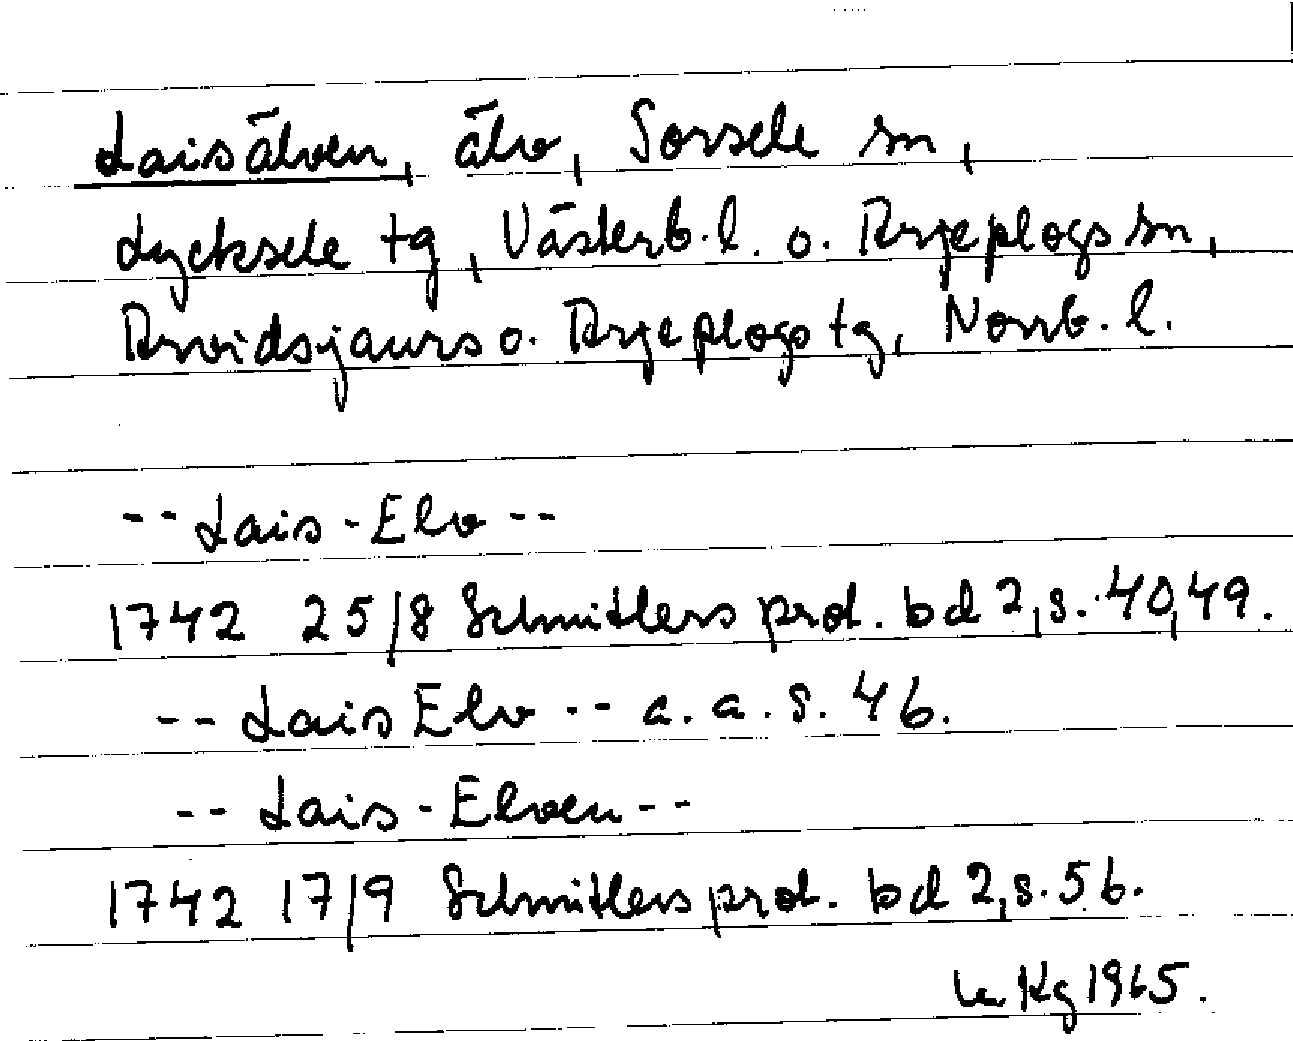 Laisälven, älv, Sorsele sn,
Lycksele tg, Västerb. l. o. Arjeplogs sn,
Arvidsjaurs o. Arjeplogs tg, Norrb. l.
-- Lais-Elv --
1742 25/8 Schnitlers prot. bd 2, s. 40, 49.
-- Lais Elv -- a. a. s. 46.
-- Lais-Elven --
1742 17/9 Schnitlers prot. bd 2, s. 56.
Kg 1965.